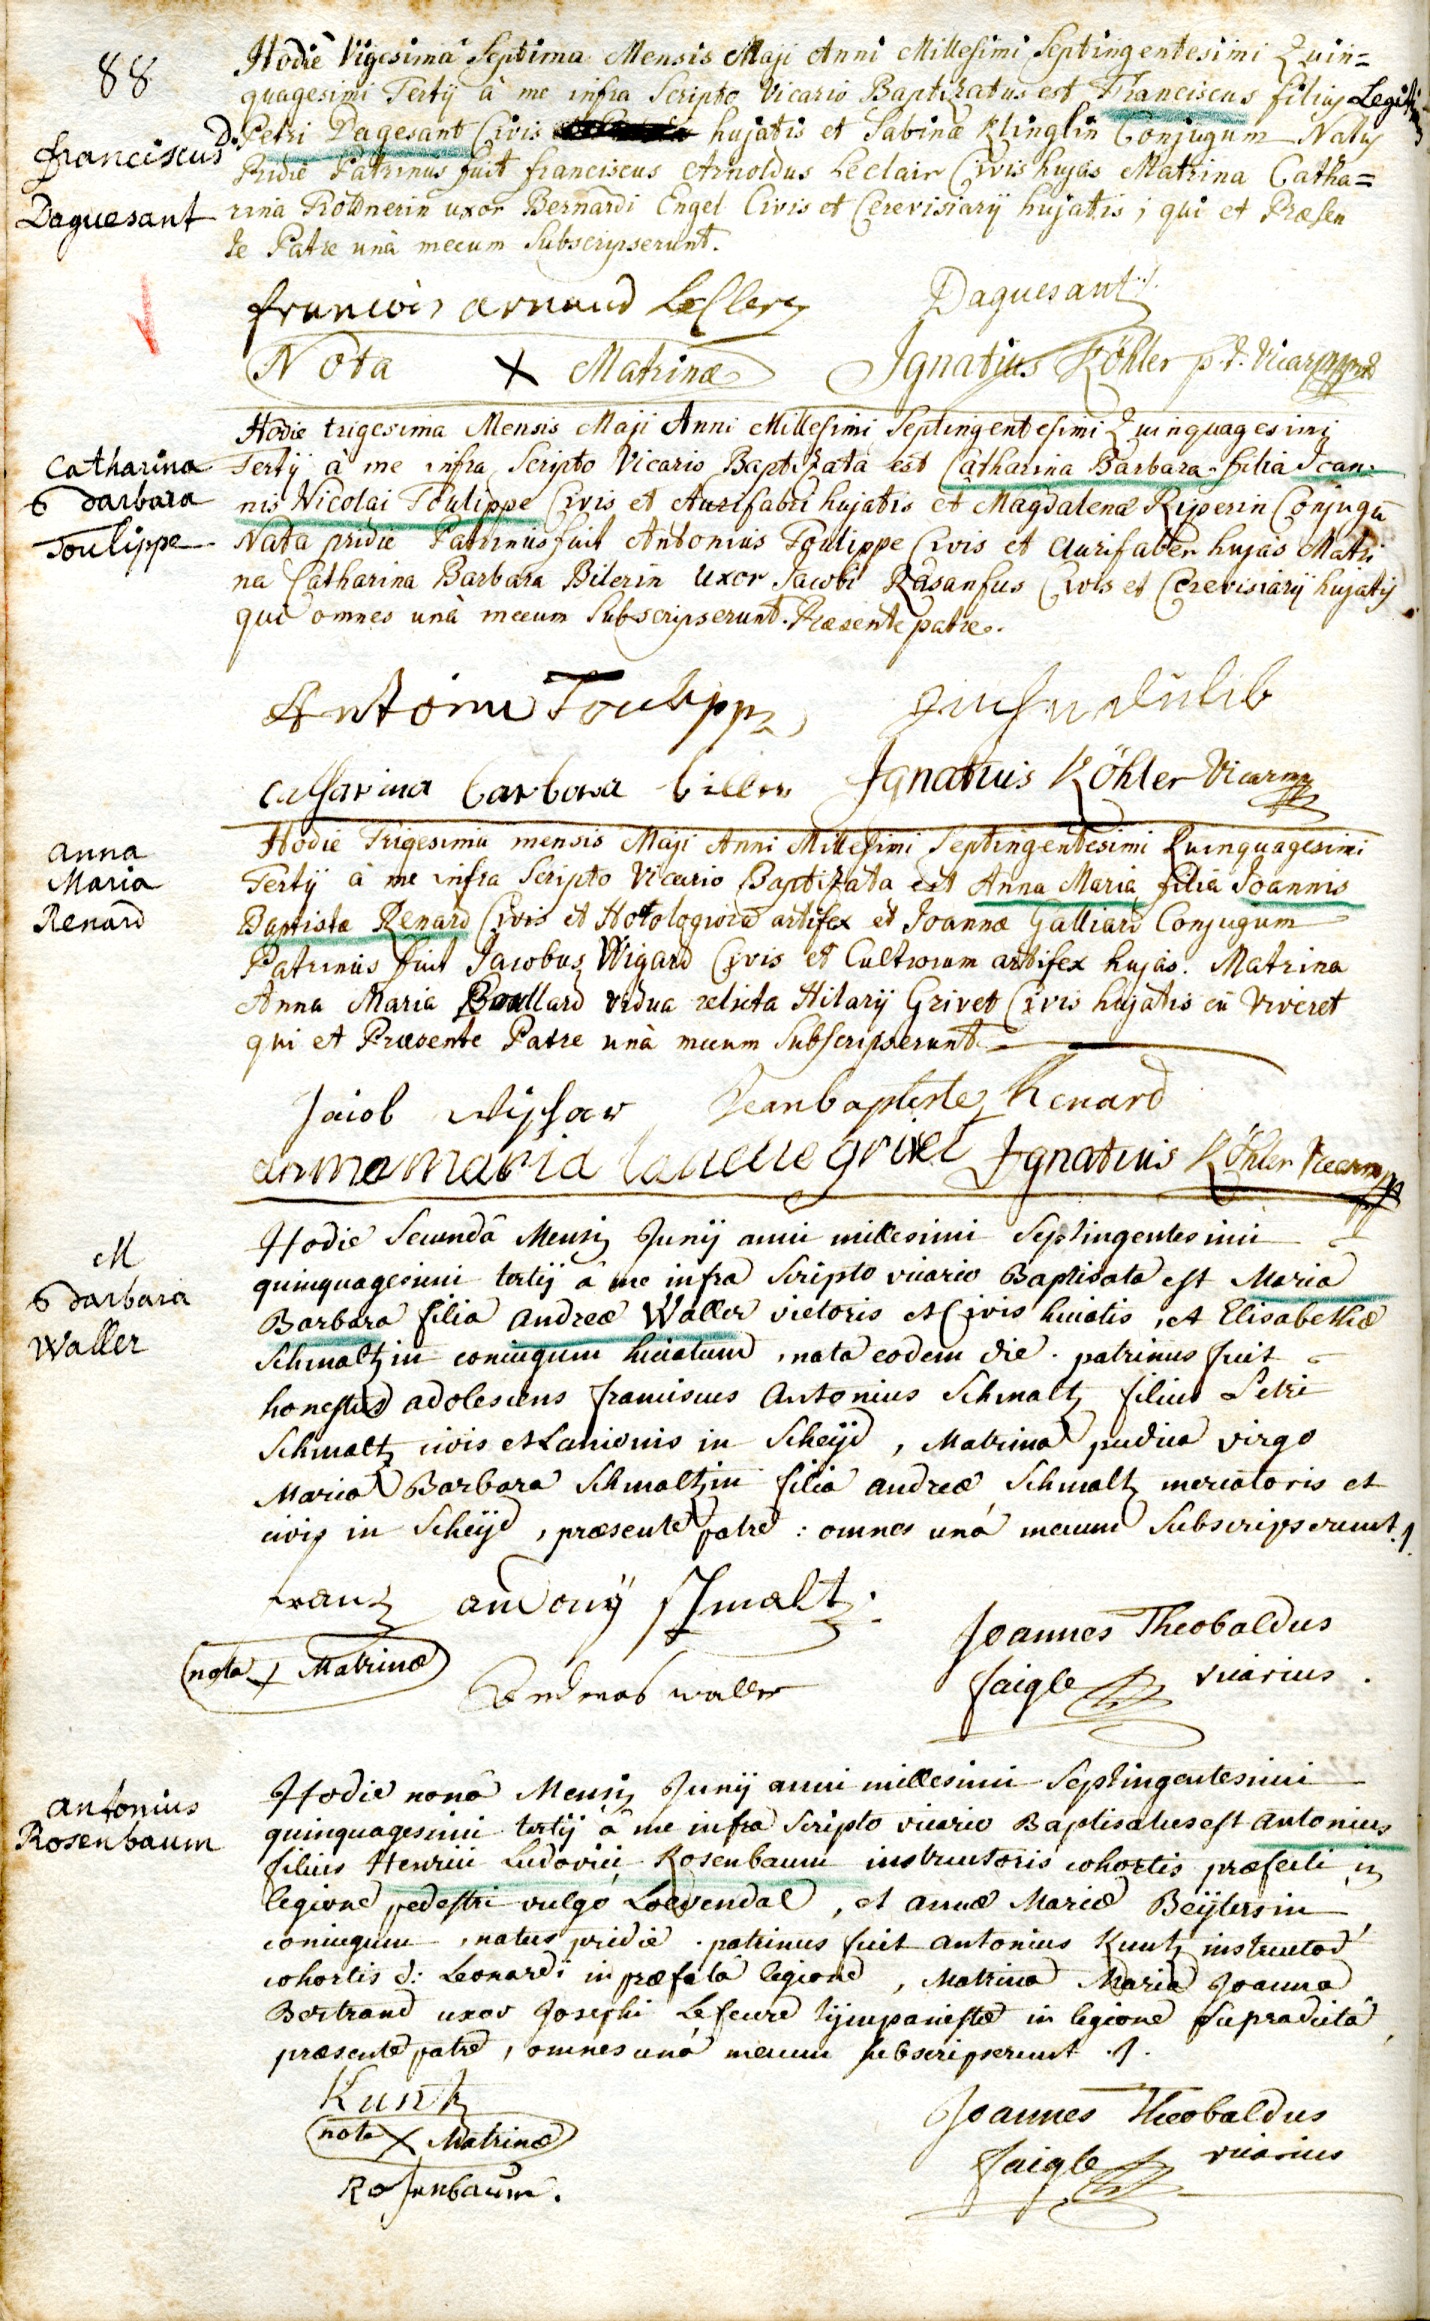 88
Hodiè Vigesimâ Septima Mensis Maji Anni Millesimi Septingentesimi Quin=
quagesimi Tertÿ à me infra Scripto Vicario Baptizatus est Franciscus filius Legiti
franciscus
Daguesant
D. Petri Dagesant Civis hujatis et Sabinæ Klinglin Conjugum Natus
Pridie Patrinus fuit franciscus Arnoldus Leclair Civis hujas Matrina Catha=
rina Roldnerin uxor Bernardi Engel Civis et Cerevisiarÿ hujatis; qui et Præsen
te Patre unà mecum Subscripserunt.
francois arnaud LeClerq Daguesant
Nota X Matrinæ Ignatius Köhler p.t. Vicarius
Catharina
Barbara
Toulippe
Hodie trigesima Mensis Maji Anni Millesimi Septingentesimi Quinquagesimi
Tertÿ à me infra Scripto Vicario Baptizata est Catharina Barbara filia Joan-
nis Nicolai Toulippe Civis et Aurifabri hujatis et Magdalenæ Riperin Conjugū
Nata pridie Patrinus fuit Antonius Toulippe Civis et aurifaber hujas Matri
na Catharina Barbara Bilerin Uxor Jacobi Rasansus Civis et Cerevisiarÿ hujatis
qui omnes unà mecum Subscripserunt. Præsente patre.
Antoine Toulippe
Catharina barbara billerin Ignatius Köhler Vicarius
anna
Maria
Renard
Hodie Trigesima mensis Maji Anni Millesimi Septingentesimi Quinquagesimi
Tertÿ à me infra Scripto Vicario Baptizata est Anna Maria filia Joannis
Baptistæ Renard Civis et Horologiorū artifex et Joannæ Galliard Conjugum
Patrinus fuit Jacobus Wigard Civis et Cultrorum artifex hujas. Matrina
Anna Maria Boullard vidua relicta Hilarÿ Grivet Civis hujatis cū Viveret
qui et Præsente Patre unà mecum Subscripserunt
Jacob Jeanbaptiste Renard
anna maria grivet Ignatius Köhler Vicarius
M
Barbara
Waller
Hodie Secundâ Mensis Junÿ anni millesimi Septingentesimi
quinquagesimi tertÿ â me infra Scripto vicario Baptisata est Maria
Barbara filia andreæ Waller vietoris et Civis huiatis, et Elisabethæ
Schmaltzin coniugum huiatum, nata eodem die. patrinus fuit
honestus adolescens franciscus Antonius Schmaltz filius Petri
Schmaltz civis et Lanionis in Scheÿd, Matrina pudica virgo
Maria Barbara Schmaltzin filia andreæ Schmaltz mercatoris et
civis in Scheÿd, præsente patre: omnes unâ mecum Subscripserunt.
Frantz antonÿ Schmaltz.
Joannes Theobaldus
nota + Matrinæ
Andreas waller
faigle vicarius.
antonius
Rosenbaum
Hodie nonâ Mensis Junÿ anni millesimi Septingentesimi
quinquagesimi tertÿ â me infra Scripto vicario Baptisatus est antonius
filius Henrici Ludovici Rosenbaum instructoris cohortis præfecti in
legione pedestri vulgò Loevendal, et annæ Mariæ Beÿtersin
coniugum, natus pridie. patrinus fuit antonius Kuntz instructor
cohortis d: Leonardi in præfatâ legione, Matrina Maria Joanna
Bertrand uxor Josephi Lefeure tÿmpanistæ in legione supradictâ
præsente patre, omnes unâ mecum subscripserunt.
Kuntz
nota X Matrinæ
Rosenbaum.
Joannes Theobaldus
faigle vicarius